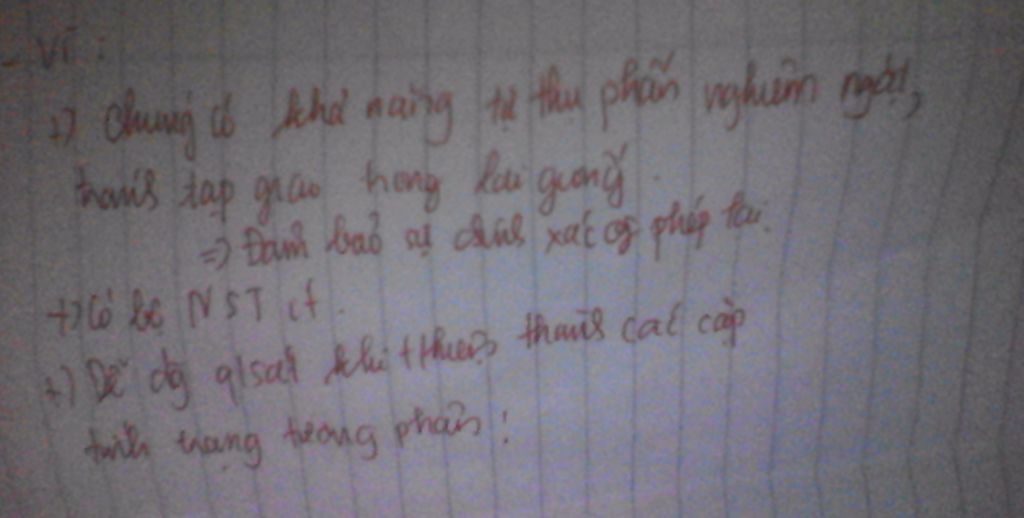 - Vì:
+) Chúng có khả năng tự thụ phấn nghiêm ngặt,
tránh tạp giao trong lai giống.
=> Đảm bảo sự chính xác của phép lai.
+) Có bộ NST ít.
+) Dễ dàng q/sát khi thành các cặp
tính trạng tương phản!